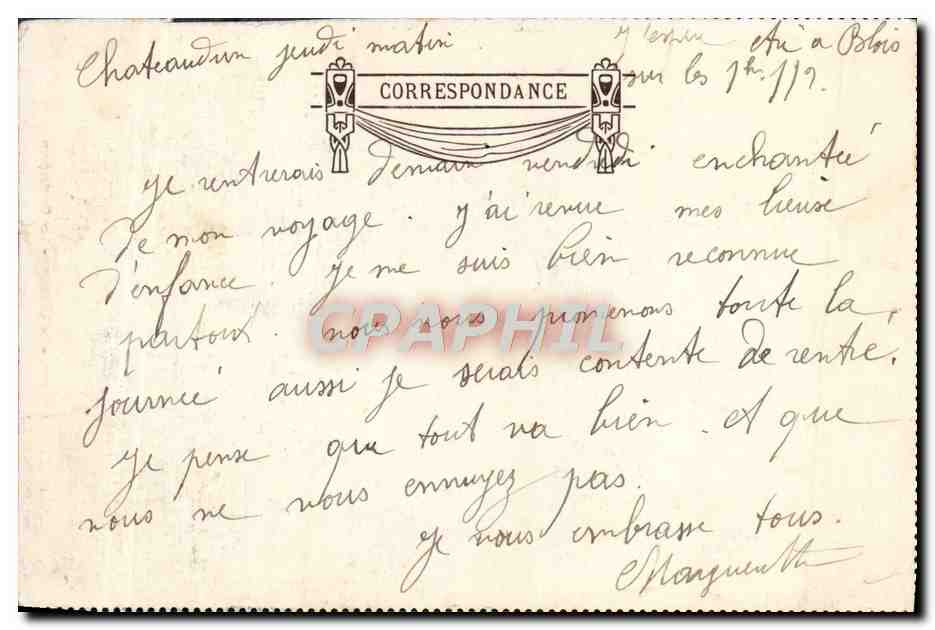 Chateaudun jeudi matin
j'espère être à Blois
sur les 1h 1/2.
CORRESPONDANCE
Je rentrerais demain vendredi enchantée
de mon voyage. J'ai revue mes lieuse
d'enfance. Je me suis bien reconnue
partout. nous nous promenons toute la
CPAPHIL
journée aussi je serais contente de rentré.
Je pense que tout va bien. et que
vous ne vous ennuyez pas.
Je vous embrasse tous.
Marguerite